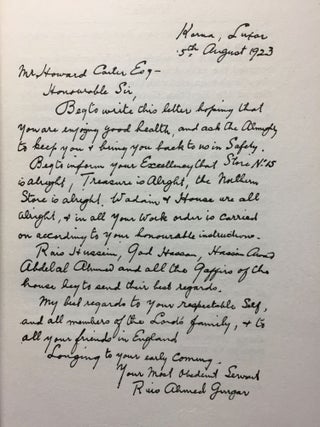 Karna, Luxor
5th August 1923
Mr. Howard Carter Esq-
Honourable Sir,
Beg to write this letter hoping that
you are enjoying good health, and ask the Almighty
to keep you & bring you back to us in Safety.
Beg to inform your Excellency that Store No. 15
is alright, Treasure is Alright, the Northern
Store is alright. Wadain & House are all
alright, & in all your work order is carried
on according to your honourable instructions.
Rais Hussein, Gad Hassan, Hassan Awad
Abdelal Ahmed and all the Gaffirs of the
house beg to send their best regards.
My best regards to your respectable Self,
and all members of the Lord's family, & to
all your friends in England
Longing to your early coming.
Your Most Obedient Servant
Rais Ahmed Gurgar